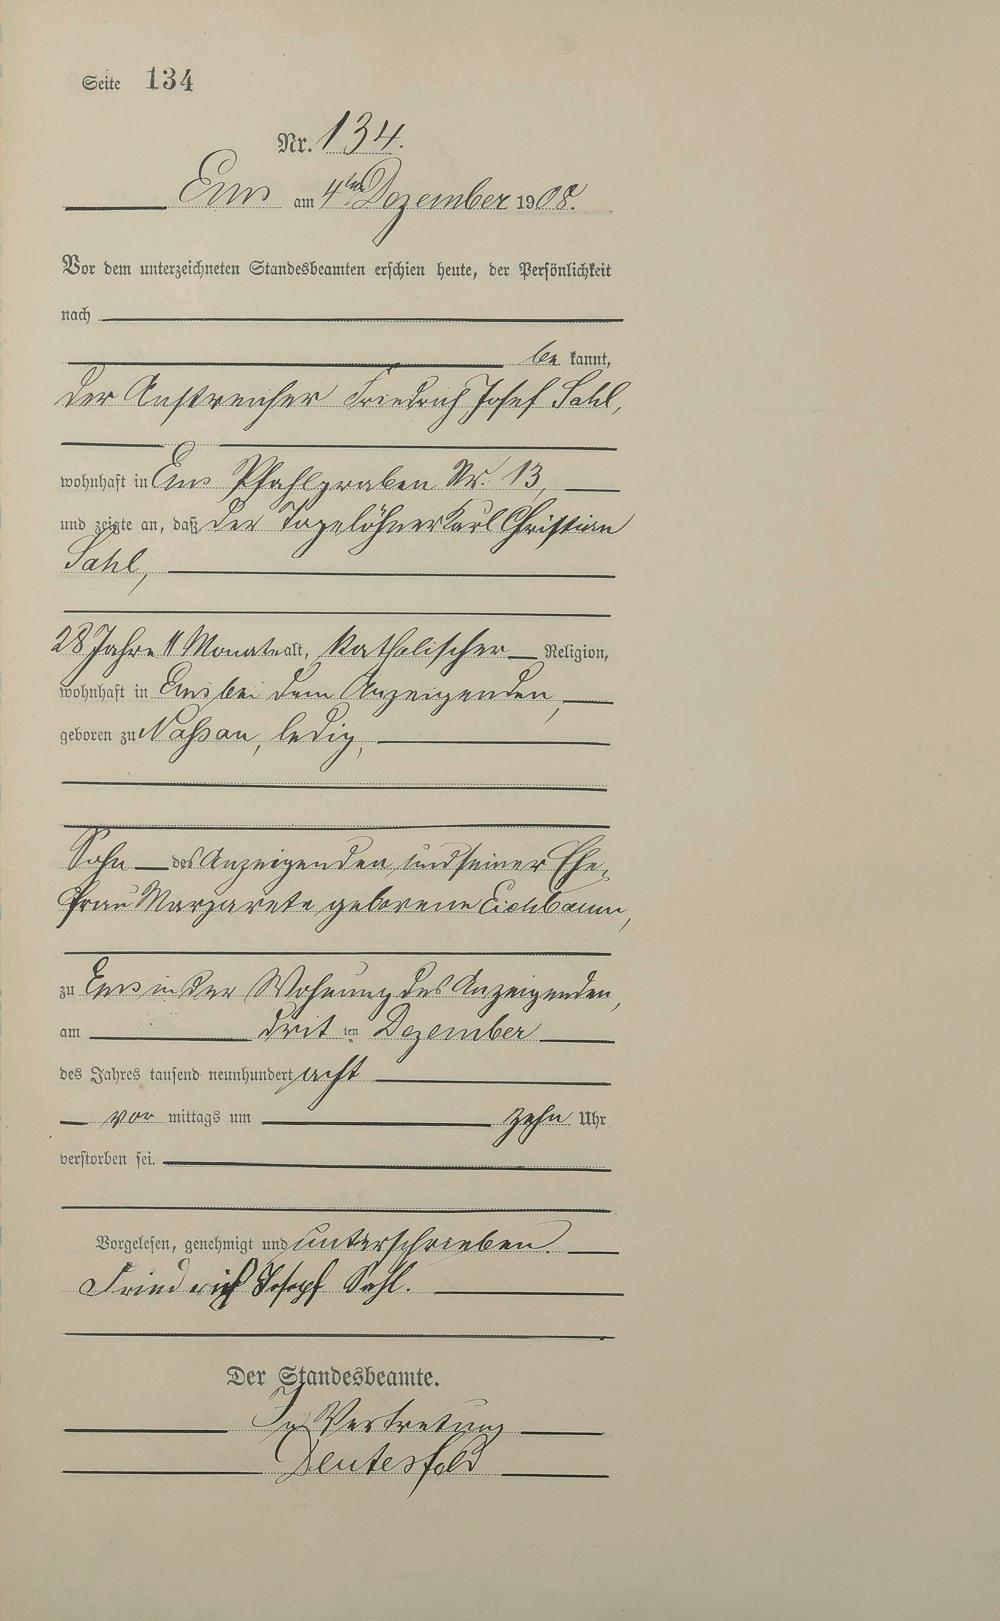 Seite 134
Nr. 134.
Ems am 4ten Dezember 1908.
Vor dem unterzeichneten Standesbeamten erschien heute, der Persönlichkeit
nach
be kannt,
der Anstreicher Friedrich Josef Sahl,
wohnhaft in Ems Pfahlgraben Nr. 13,
und zeigte an, daß der Tagelöhner Karl Christian
Sahl,
28 Jahre 11 Monate alt, katholischer Religion,
wohnhaft in Ems bei dem Anzeigenden,
geboren zu Nassau, ledig,
Sohn des Anzeigenden und seiner Ehe-
frau Margarete geborene Eichbaum,
zu Ems in der Wohnung des Anzeigenden,
am drit ten Dezember
des Jahres tausend neunhundert acht
vor mittags um zehn Uhr
verstorben sei.
Vorgelesen, genehmigt und unterschrieben.
Friedrich Joseph Sahl.
Der Standesbeamte.
In Vertretung